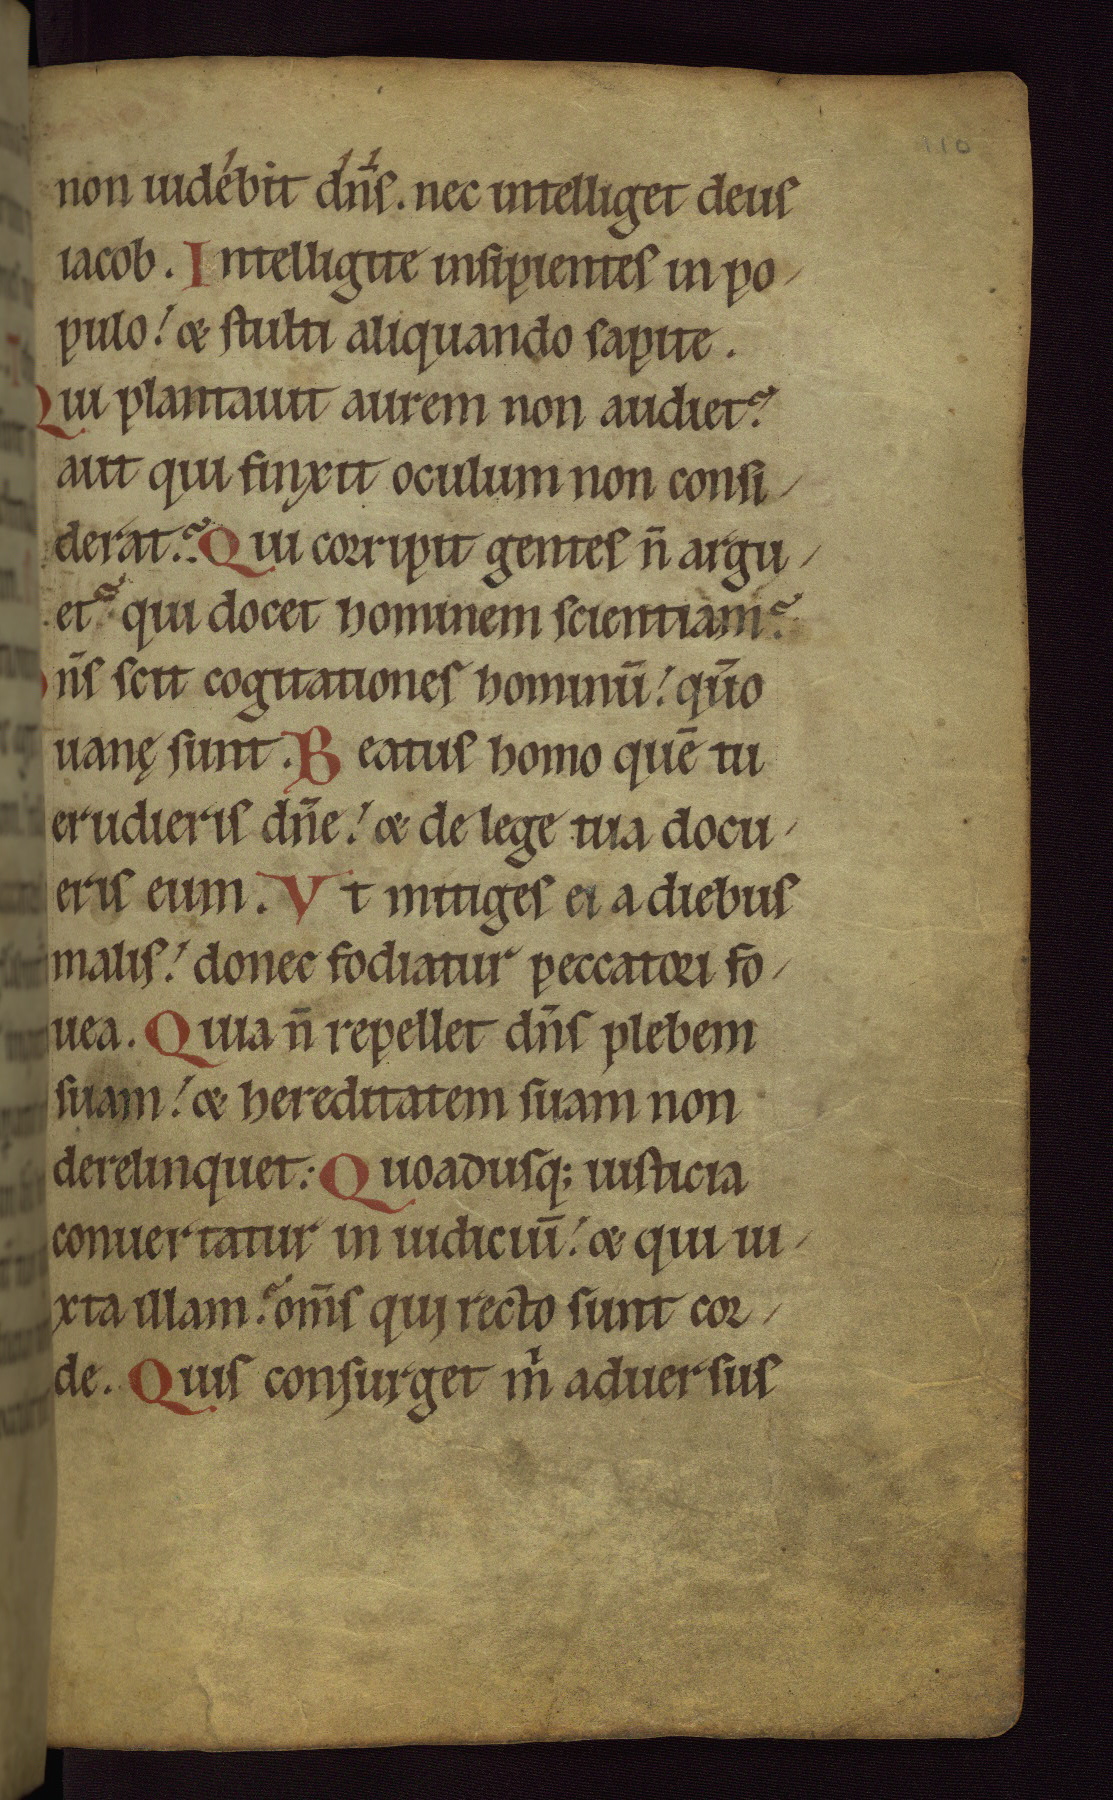 110
non uidébit dn̄s. nec intelliget deus
iacob. Intelligite insipientes in po-
pulo! & stulti aliquando sapite.
Qui plantauit aurem non audiet?
aut qui finxit oculum non consi-
derat? Qui corripit gentes n̄ argu-
et? qui docet hominem scientiam?
Dn̄s scit cogitationes hominū! qm̄o
uanę sunt. Beatus homo quē tu
erudieris dn̄e! & de lege tua docu-
eris eum. Vt mitiges ei a diebus
malis! donec fodiatur peccatori fo-
uea. Quia n̄ repellet dn̄s plebem
suam! & hereditatem suam non
derelinquet. Quoadusq; iusticia
conuertatur in iudiciū! & qui iu-
xta illam? om̄s qui recto sunt cor-
de. Quis consurget m̄ aduersus